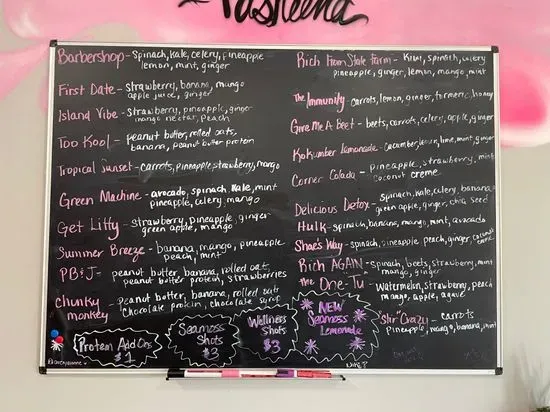 Barbershop - spinach, kale, celery, pineapple
lemon, mint, ginger
First Date - strawberry, banana, mango
apple juice, ginger
Island Vibe - Strawberry, pineapple, ginger
mango nectar, peach
Too Kool - peanut butter, rolled oats,
banana, peanut butter protein
Tropical Sunset - carrots, pineapple, strawberry, mango
Green Machine - avocado, spinach, kale, mint
pineapple, celery, mango
Get Litty - strawberry, pineapple, ginger
green apple, mango
Summer Breeze - banana, mango, pineapple
peach, mint
PB&J - peanut butter, banana, rolled oat,
peanut butter protein, strawberries
Chunky Monkey - peanut butter, banana, rolled oats
chocolate protein, chocolate syrup
Rich From State Farm - Kiwi, spinach, celery
pineapple, ginger, lemon, mango, mint
The Immunity - carrots, lemon, ginger, turmeric, honey
Give Me A Beet - beets, carrots, celery, apple, ginger
Kokumber Lemonade - cucumber, lemon, lime, mint, ginger
Corner Colada - pineapple, strawberry, mint
coconut creme
Delicious Detox - spinach, kale, celery, banana
green apple, ginger, chia seed
Hulk - spinach, banana, mango, mint, avocado
Shae's Way - spinach, pineapple, peach, ginger, coconut
Rich AGAIN - spinach, beets, strawberry, mint
mango, ginger
The One-Tu - watermelon, strawberry, peach
mango, apple, agave
"Stir" Crazy - carrots
pineapple, mango, banana, mint
Protein Add Ons
$1
Seamoss
Shots
$3
Wellness
Shots
$3
NEW
Seamoss
Lemonade